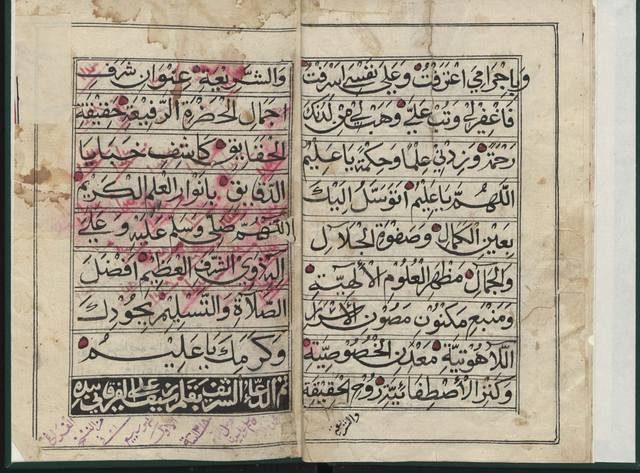 وباجرامي اعترفت وعلى نفسي اسرفت
فاغفر لي وتب علي وهب لي من لدنك
رحمة وزدني علما وحكمة يا عليم
اللهم يا عليم نتوسل اليك
بعين الكمال وصفوة الجلال
والجمال مظهر العلوم الالهية
ومنبع مكنون مصون الاسرار
اللاهوتية معدن الخصوصية
وكنز الاصطفائية روح الحقيقة
والشريعة
والشريعة عنوان شرف
اجمال الحضرة الرفيعة حقيقة
الحقايق كاشف خبايا
الدقايق بانوار العلم الكريم
اللهم صلي وسلم عليه وعلى
البذوي الشرف العظيم افضل
الصلاة والتسليم بجودك
وكرمك يا عليم
تم الدعاء الشريف بقلم